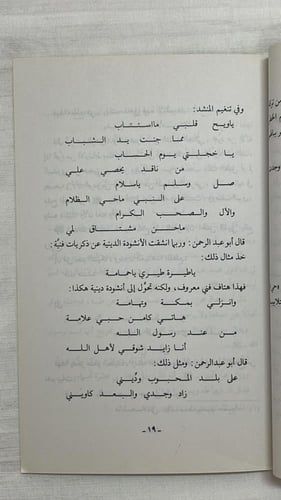 وفي تنغيم المنشد:
ياويح قلبي مااستتاب
مما جنت يد الشباب
يا خجلتي يوم الحساب
من ناقد يحصي علي
صل وسلم ياسلام
على النبي ماحي الظلام
والآل والصحب الكرام
ماحن مشتاق لي
قال أبو عبد الرحمن: وربما انشقت الأنشودة الدينية عن ذكريات فنية:
خذ مثال ذلك:
ياطيرة طيري ياحمامة
فهذا هتاف فني معروف، ولكنه تحول إلى أنشودة دينية هكذا:
وانزلي بمكة وتهامة
هاتي كامن حبي علامة
من عند رسول الله
أنا زايد شوقي لأهل الله
قال أبو عبد الرحمن: ومثل ذلك:
على بلد المحبوب وديني
زاد وجدي والبعد كاويني
-١٩-